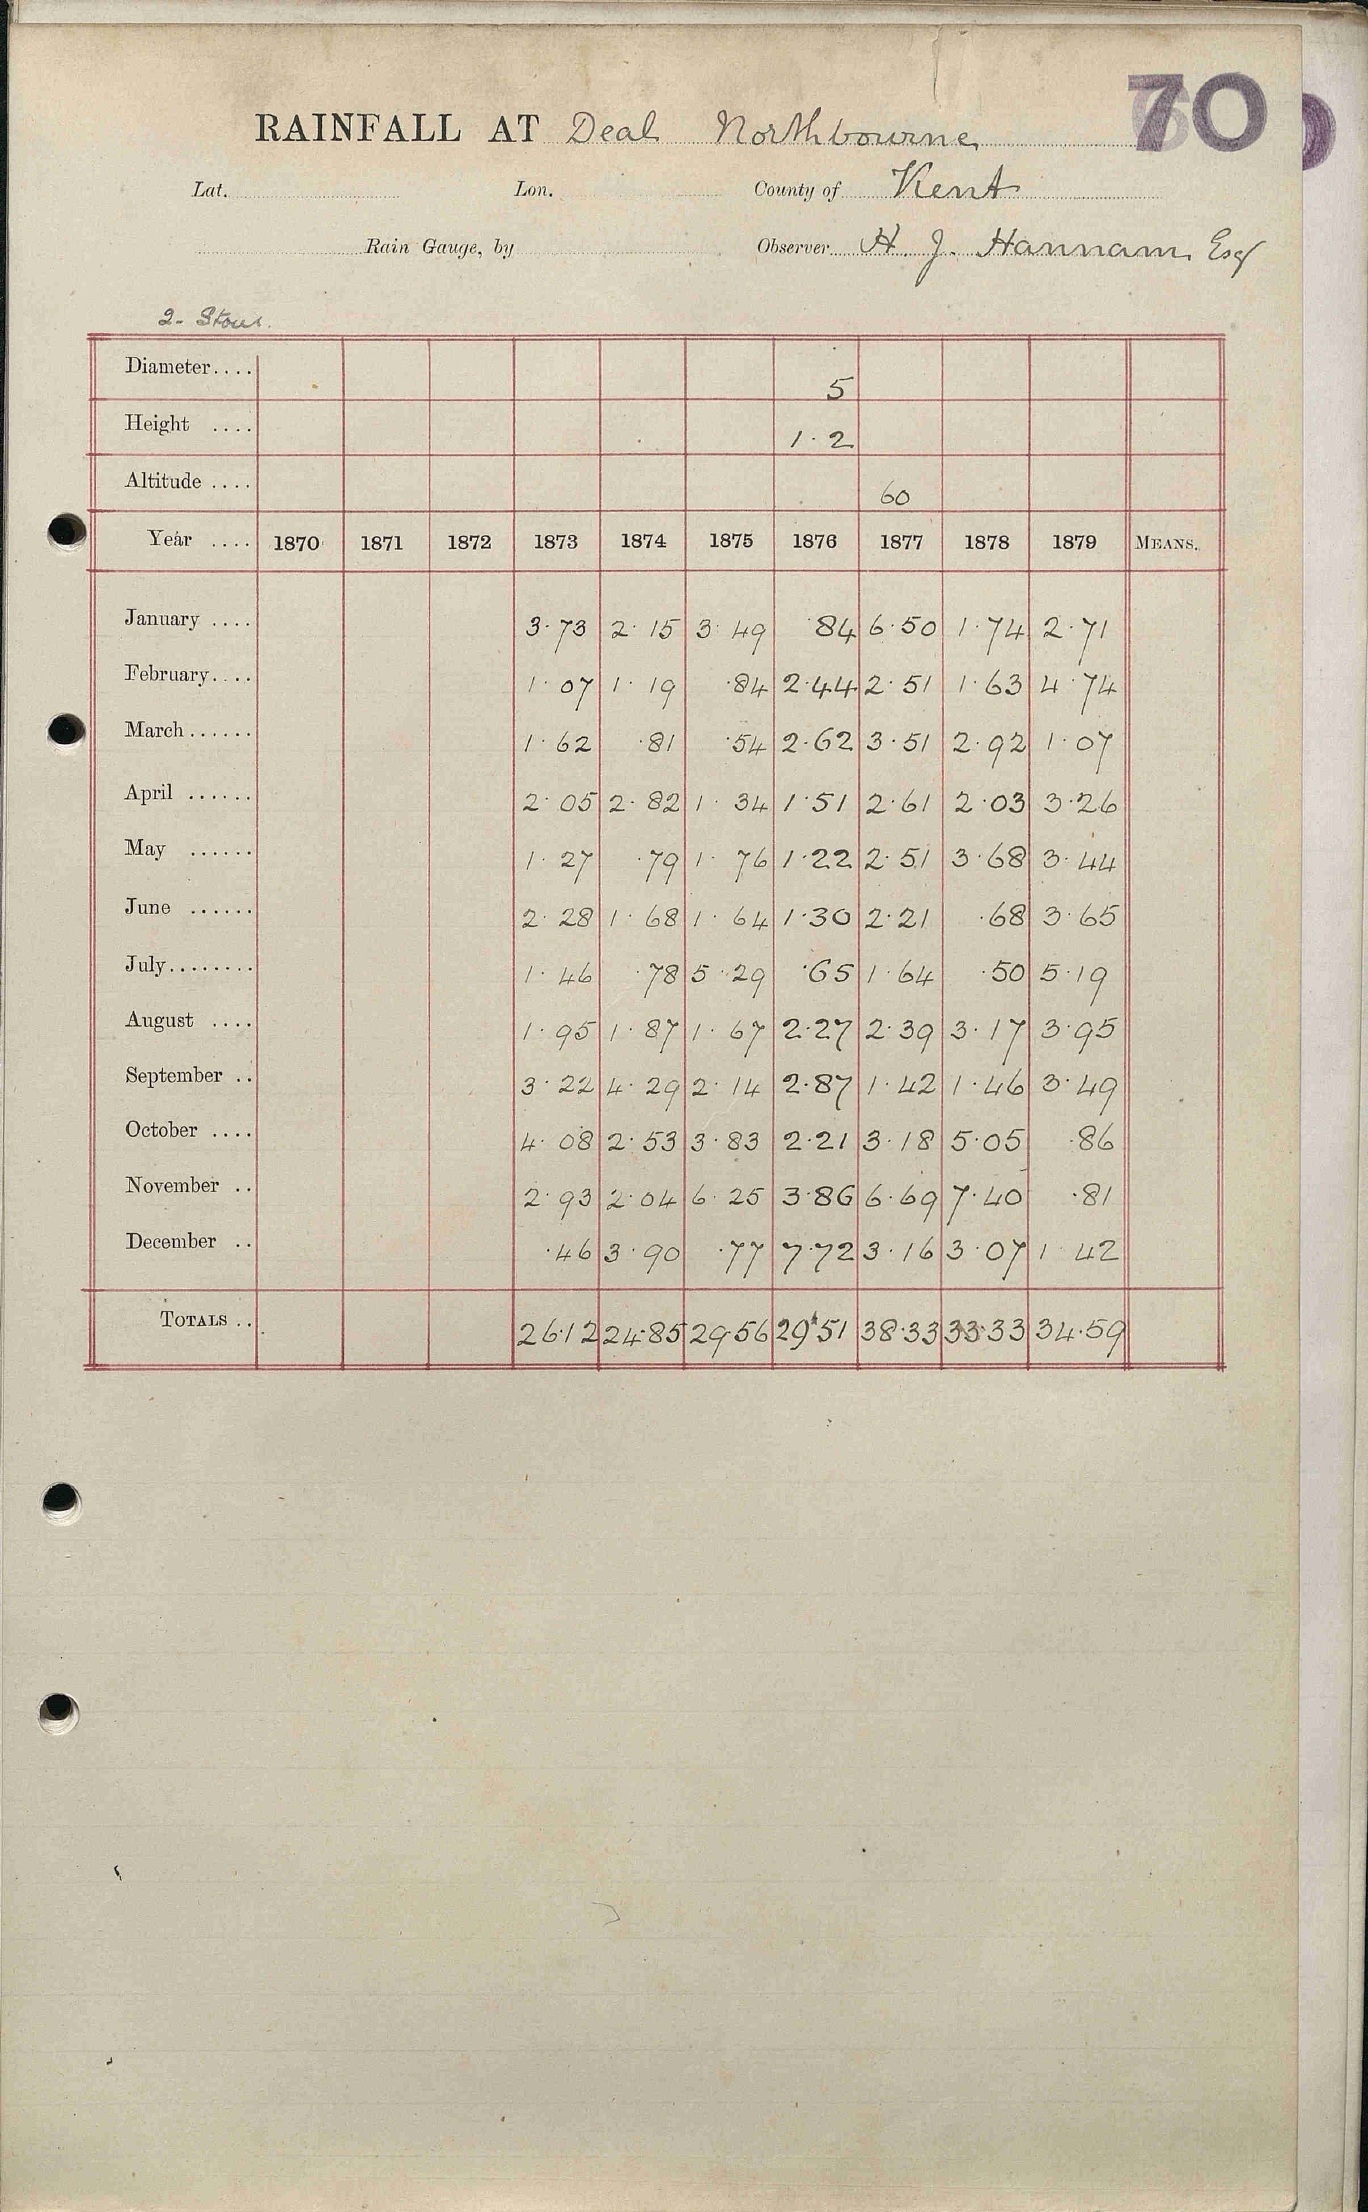 70
RAINFALL AT Deal Northbourne
Lat. Lon. County of Kent
Rain Gauge, by Observer H. J. Hannam Esq
2 - Stour.
Diameter.... 5
Height .... 1.2
Altitude .... 60
Year .... 1870 1871 1872 1873 1874 1875 1876 1877 1878 1879 MEANS.
January .... 3.73 2.15 3.49 .84 6.50 1.74 2.71
February.... 1.07 1.19 .84 2.44 2.51 1.63 4.74
March...... 1.62 .81 .54 2.62 3.51 2.92 1.07
April ...... 2.05 2.82 1.34 1.51 2.61 2.03 3.26
May ...... 1.27 .79 1.76 1.22 2.51 3.68 3.44
June ...... 2.28 1.68 1.64 1.30 2.21 .68 3.65
July........ 1.46 .78 5.29 .65 1.64 .50 5.19
August .... 1.95 1.87 1.67 2.27 2.39 3.17 3.95
September .. 3.22 4.29 2.14 2.87 1.42 1.46 3.49
October .... 4.08 2.53 3.83 2.21 3.18 5.05 .86
November .. 2.93 2.04 6.25 3.86 6.69 7.40 .81
December .. .46 3.90 .77 7.72 3.16 3.07 1.42
TOTALS .. 26.12 24.85 29.56 29.51 38.33 33.33 34.59